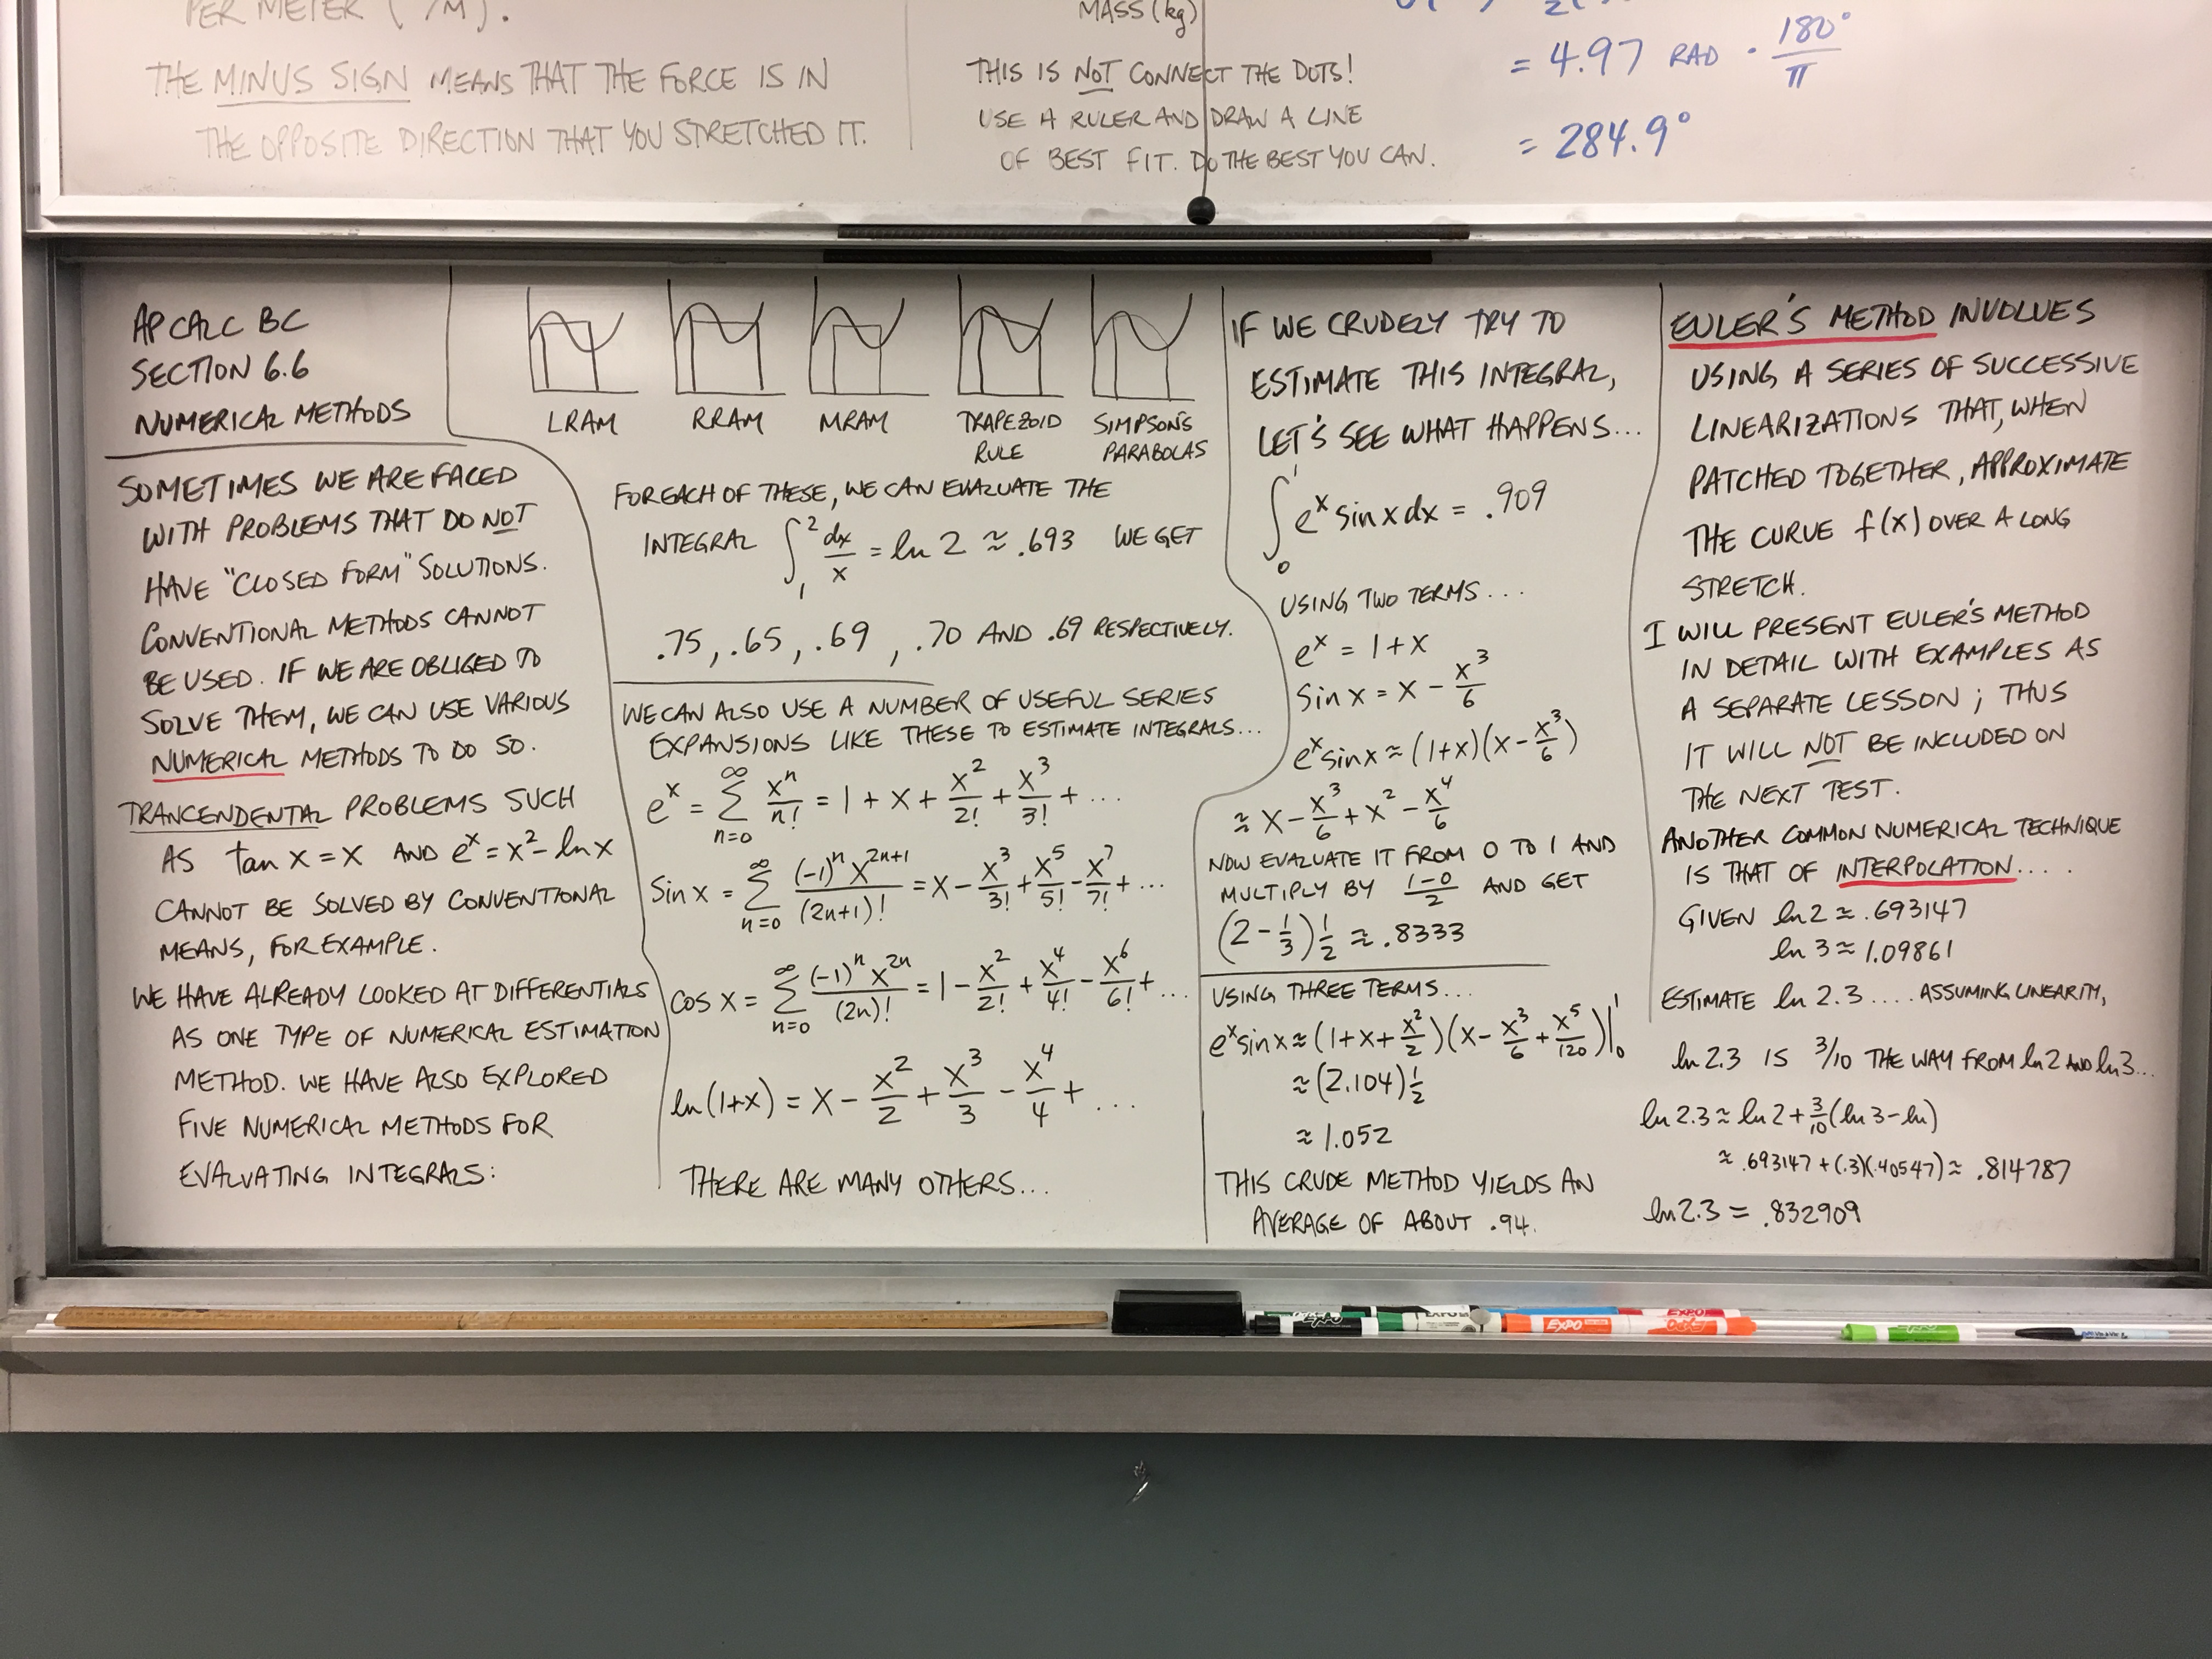 PER METER ( /M).
THE MINUS SIGN MEANS THAT THE FORCE IS IN
THE OPPOSITE DIRECTION THAT YOU STRETCHED IT.
MASS (kg)
THIS IS NOT CONNECT THE DOTS!
USE A RULER AND DRAW A LINE
OF BEST FIT. DO THE BEST YOU CAN.
= 4.97 RAD · 180°/π
= 284.9°
AP CALC BC
SECTION 6.6
NUMERICAL METHODS
SOMETIMES WE ARE FACED
WITH PROBLEMS THAT DO NOT
HAVE "CLOSED FORM" SOLUTIONS.
CONVENTIONAL METHODS CANNOT
BE USED. IF WE ARE OBLIGED TO
SOLVE THEM, WE CAN USE VARIOUS
NUMERICAL METHODS TO DO SO.
TRANCENDENTAL PROBLEMS SUCH
AS tan x = x AND e^x = x^2 - ln x
CANNOT BE SOLVED BY CONVENTIONAL
MEANS, FOR EXAMPLE.
WE HAVE ALREADY LOOKED AT DIFFERENTIALS
AS ONE TYPE OF NUMERICAL ESTIMATION
METHOD. WE HAVE ALSO EXPLORED
FIVE NUMERICAL METHODS FOR
EVALUATING INTEGRALS:
LRAM RRAM MRAM TRAPEZOID RULE SIMPSON'S PARABOLAS
FOR EACH OF THESE, WE CAN EVALUATE THE
INTEGRAL ∫_1^2 dx/x = ln 2 ≈ .693 WE GET
.75, .65, .69, .70 AND .69 RESPECTIVELY.
WE CAN ALSO USE A NUMBER OF USEFUL SERIES
EXPANSIONS LIKE THESE TO ESTIMATE INTEGRALS...
e^x = ∑_{n=0}^∞ x^n/n! = 1 + x + x^2/2! + x^3/3! + ...
Sin x = ∑_{n=0}^∞ (-1)^n x^{2n+1}/(2n+1)! = x - x^3/3! + x^5/5! - x^7/7! + ...
cos x = ∑_{n=0}^∞ (-1)^n x^{2n}/(2n)! = 1 - x^2/2! + x^4/4! - x^6/6! + ...
ln(1+x) = x - x^2/2 + x^3/3 - x^4/4 + ...
THERE ARE MANY OTHERS...
IF WE CRUDELY TRY TO
ESTIMATE THIS INTEGRAL,
LET'S SEE WHAT HAPPENS...
∫_0^1 e^x sin x dx = .909
USING TWO TERMS...
e^x = 1+x
Sin x = x - x^3/6
e^x sin x ≈ (1+x)(x - x^3/6)
≈ x - x^3/6 + x^2 - x^4/6
NOW EVALUATE IT FROM 0 TO 1 AND
MULTIPLY BY (1-0)/2 AND GET
(2 - 1/3) 1/2 ≈ .8333
USING THREE TERMS...
e^x sin x ≈ (1+x+x^2/2)(x - x^3/6 + x^5/120)|_0^1
≈ (2.104) 1/2
≈ 1.052
THIS CRUDE METHOD YIELDS AN
AVERAGE OF ABOUT .94.
EULER'S METHOD INVOLVES
USING A SERIES OF SUCCESSIVE
LINEARIZATIONS THAT, WHEN
PATCHED TOGETHER, APPROXIMATE
THE CURVE f(x) OVER A LONG
STRETCH.
I WILL PRESENT EULER'S METHOD
IN DETAIL WITH EXAMPLES AS
A SEPARATE LESSON; THUS
IT WILL NOT BE INCLUDED ON
THE NEXT TEST.
ANOTHER COMMON NUMERICAL TECHNIQUE
IS THAT OF INTERPOLATION....
GIVEN ln 2 ≈ .693147
ln 3 ≈ 1.09861
ESTIMATE ln 2.3 .... ASSUMING LINEARITY,
ln 2.3 IS 3/10 THE WAY FROM ln 2 AND ln 3...
ln 2.3 ≈ ln 2 + 3/10 (ln 3 - ln)
≈ .693147 + (.3)(.40547) ≈ .814787
ln 2.3 = .832909
EXPO
EXPO
EXPO
EXPO